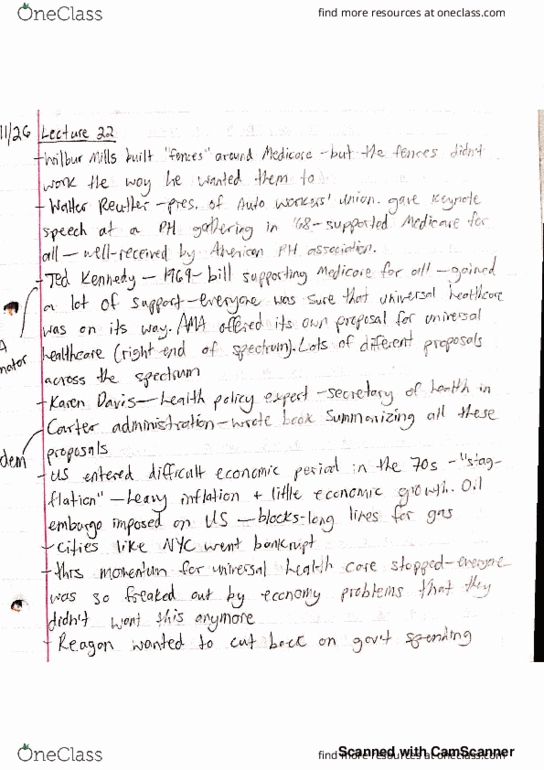 OneClass
find more resources at oneclass.com
11/26 Lecture 22
-Wilbur Mills built "fences" around Medicare - but the fences didn't
work the way he wanted them to
- Walter Reuther - pres. of Auto workers' union. gave keynote
speech at a PH gathering in '68 - supported Medicare for
all - well-received by American PH association.
- Ted Kennedy - 1969 - bill supporting Medicare for all - gained
a lot of support - everyone was sure that universal healthcare
was on its way. AMA offered its own proposal for universal
healthcare (right end of spectrum). Lots of different proposals
nator
across the spectrum
- Karen Davis - health policy expert - secretary of health in
Carter administration - wrote book summarizing all these
dem
proposals
- US entered difficult economic period in the 70s - "stag-
flation" - heavy inflation + little economic growth. Oil
embargo imposed on US - blocks-long lines for gas
- cities like NYC went bankrupt
- this momentum for universal health care stopped - everyone
was so freaked out by economy problems that they
didn't want this anymore
- Reagan wanted to cut back on gov't spending
OneClass
find more resources at oneclass.com
Scanned with CamScanner